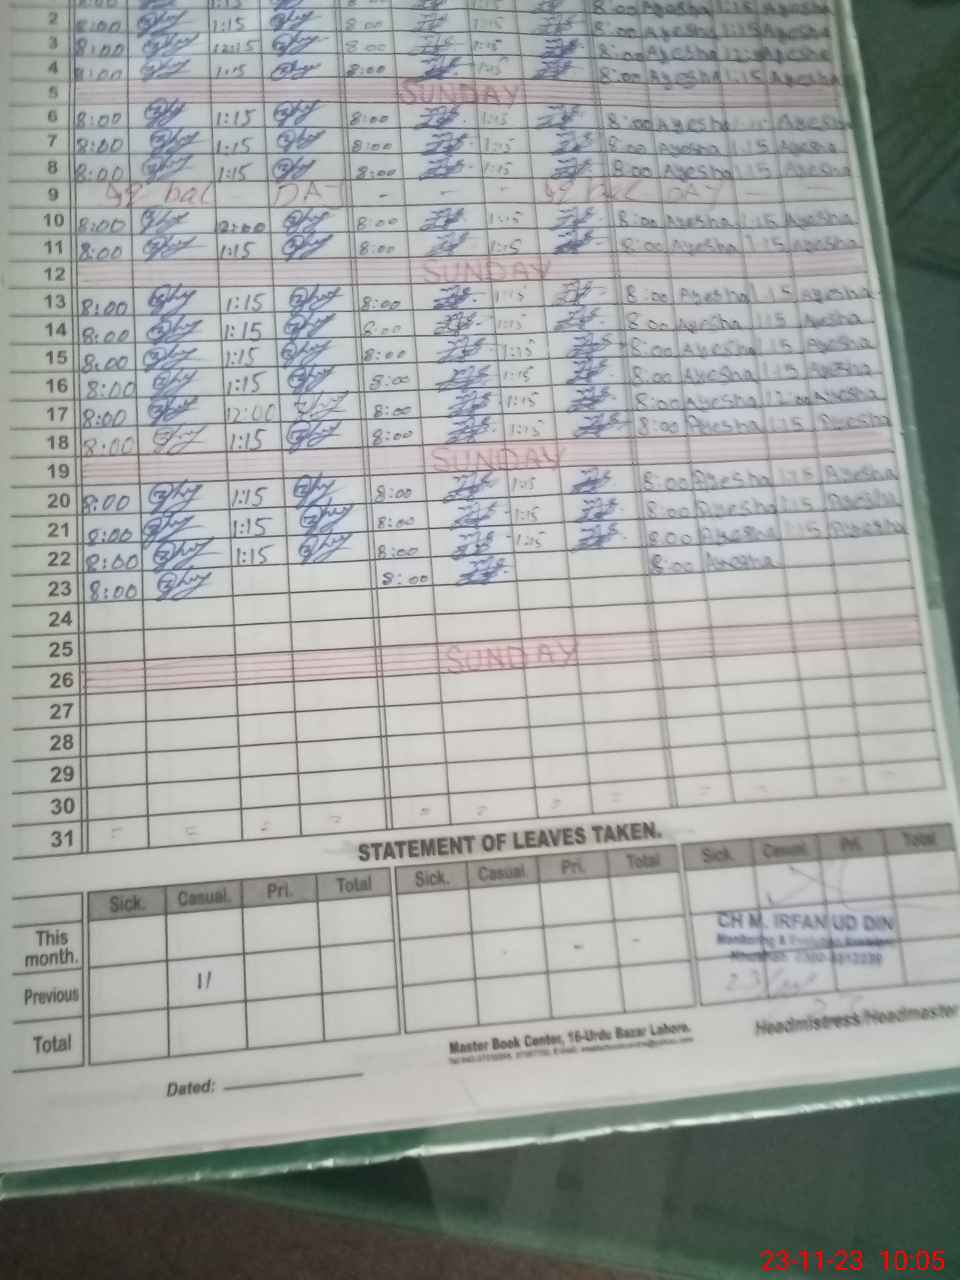 2 8:00 1:15 8:00 1:15 8:00 Ayesha 1:15 Ayesha
3 8:00 12:15 8:00 1:15 8:00 Ayesha Ayesha
4 8:00 1:15 8:00 1:15 8:00 Ayesha 1:15 Ayesha
5 SUNDAY
6 8:00 1:15 8:00 1:15 8:00 Ayesha Ayesha
7 8:00 1:15 8:00 1:15 8:00 Ayesha 1:15 Ayesha
8 8:00 1:15 8:00 1:15 8:00 Ayesha 1:15 Ayesha
9 Iqbal DAY - - - Iqbal DAY - -
10 8:00 2:00 8:00 1:15 8:00 Ayesha 1:15 Ayesha
11 8:00 1:15 8:00 1:15 8:00 Ayesha 1:15 Ayesha
12 SUNDAY
13 8:00 1:15 8:00 1:15 8:00 Ayesha 1:15 Ayesha
14 8:00 1:15 8:00 1:15 8:00 Ayesha 1:15 Ayesha
15 8:00 1:15 8:00 1:15 8:00 Ayesha 1:15 Ayesha
16 8:00 1:15 8:00 1:15 8:00 Ayesha 1:15 Ayesha
17 8:00 12:00 8:00 1:15 8:00 Ayesha 12:00 Ayesha
18 8:00 1:15 8:00 1:15 8:00 Ayesha 1:15 Ayesha
19 SUNDAY
20 8:00 1:15 8:00 1:15 8:00 Ayesha 1:15 Ayesha
21 8:00 1:15 8:00 1:15 8:00 Ayesha 1:15 Ayesha
22 8:00 1:15 8:00 1:15 8:00 Ayesha 1:15 Ayesha
23 8:00 8:00 8:00 Ayesha
24
25
26 SUNDAY
27
28
29
30
31 = = = = = = = = = = = =
STATEMENT OF LEAVES TAKEN.
Sick. Casual. Pri. Total Sick. Casual. Pri. Total Sick. Casual. Pri. Total
This month. - -
Previous 11
Total
CH M. IRFAN UD DIN
Monitoring &
23
Master Book Center, 16-Urdu Bazar Lahore.
Headmistress/Headmaster
Dated:
23-11-23 10:05